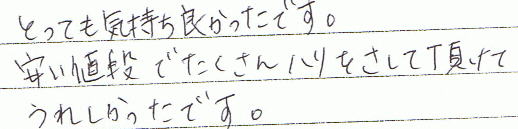 とっても気持ち良かったです。
安い値段でたくさんハリをさして頂けて
うれしかったです。